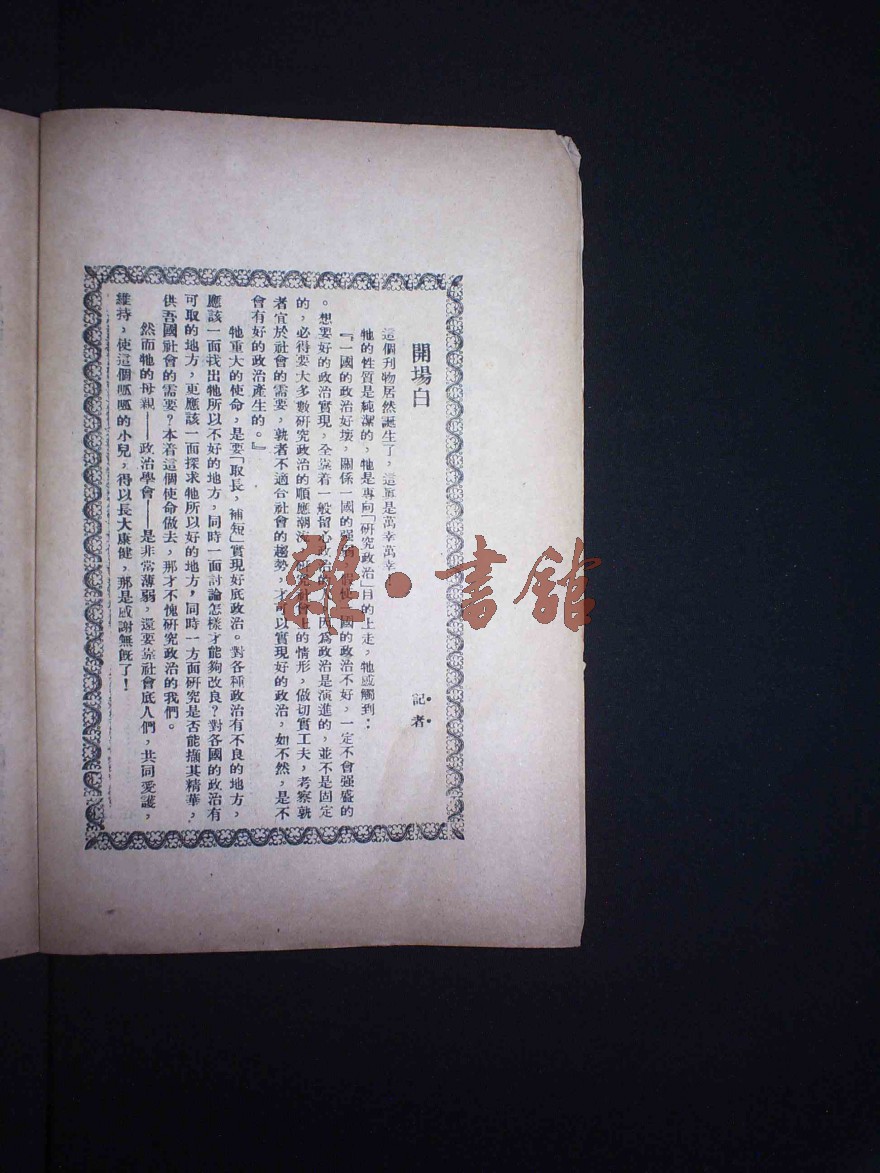 開場白
記者
這個刊物居然誕生了，這真是萬幸萬幸！
牠的性質是純潔的，牠是專向「研究政治」目的上走，牠感觸到：
『一國的政治好壞，關係一國的强弱，假使一國的政治不好，一定不會强盛的
。想要好的政治實現，全靠着一般留心政治的人，因為政治是演進的，並不是固定
的，必得要大多數研究政治的順應潮流，研究社會上的情形，做切實工夫，考察孰
者宜於社會的需要，孰者不適合社會的趨勢，才可以實現好的政治，如不然，是不
會有好的政治產生的。』
牠重大的使命，是要「取長，補短」實現好底政治。對各種政治有不良的地方，
應該一面找出牠所以不好的地方，同時一面討論怎樣才能夠改良？對各國的政治有
可取的地方，更應該一面探求牠所以好的地方，同時一方面研究是否能擷其精華，
供吾國社會的需要？本着這個使命做去，那才不愧研究政治的我們。
然而牠的母親——政治學會——是非常薄弱，還要靠社會底人們，共同愛護，
維持，使這個呱呱的小兒，得以長大康健，那是感謝無旣了！
雜·書館